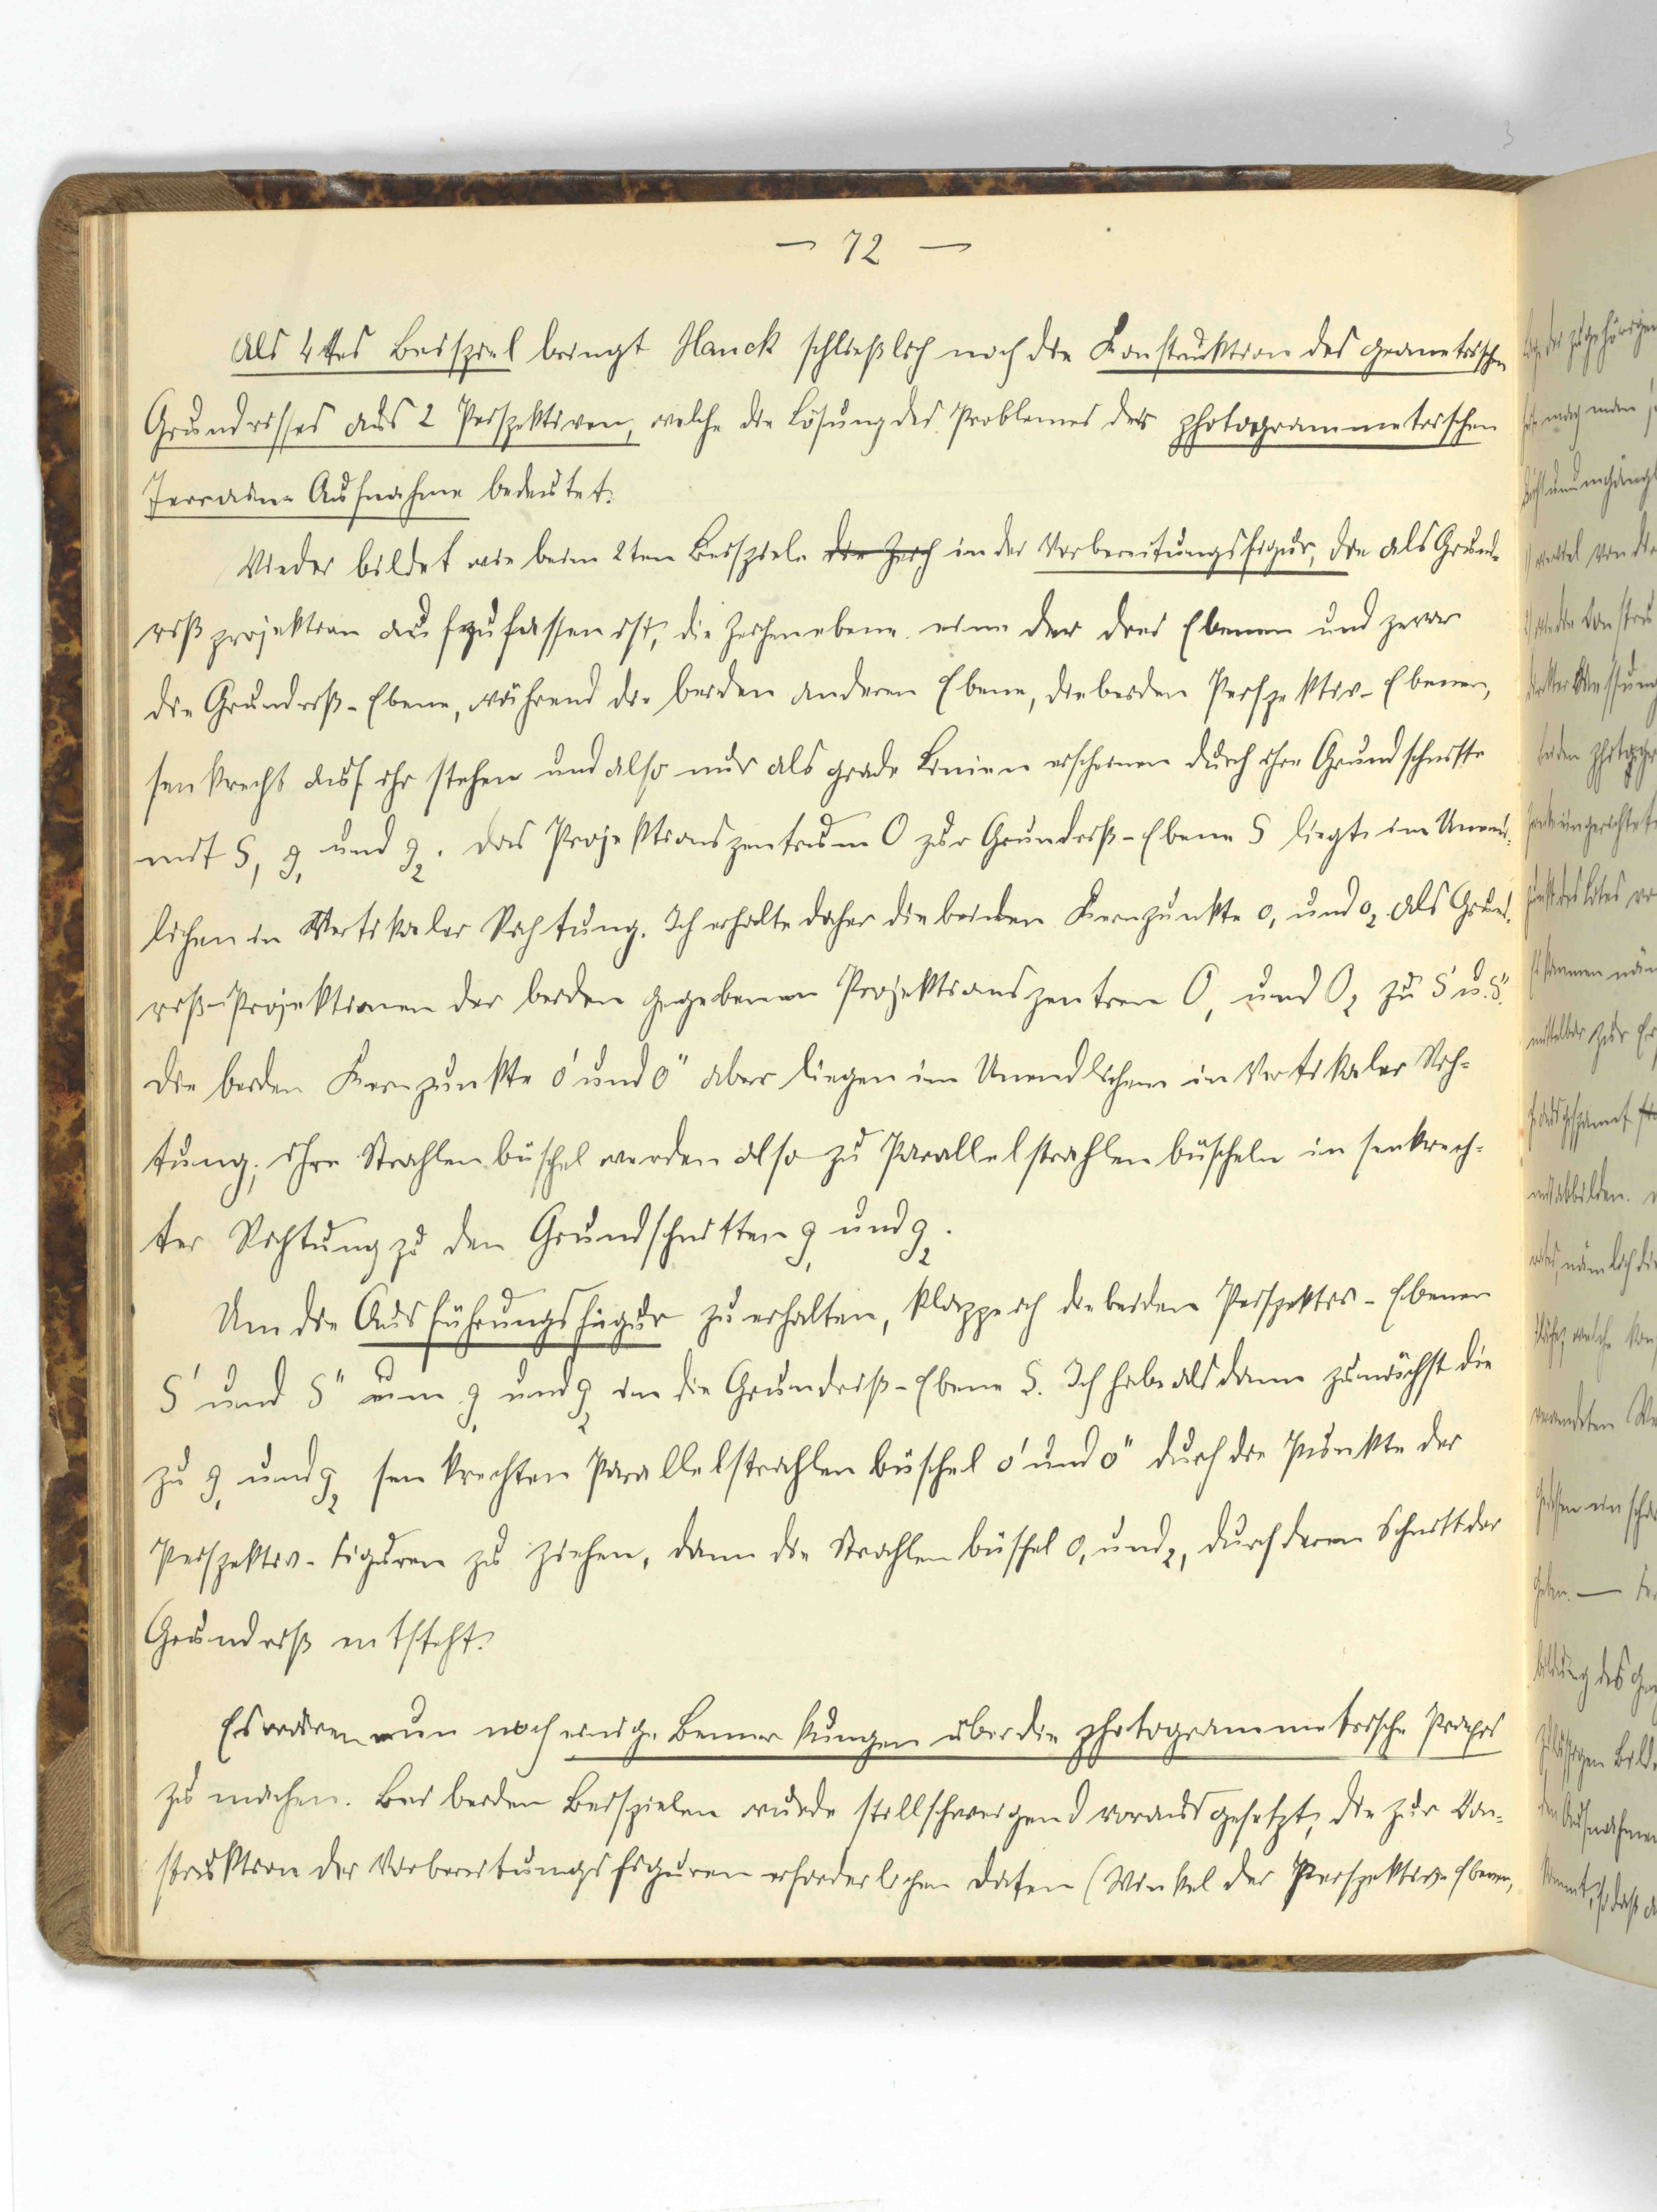 — 72 —
Als 4tes Beispiel bringt Hauck schließlich noch die Konstruktion des geometrischen
Grundrisses aus 2 Perspektiven, welche die Lösung des Problemes der photogrammetrischen
Terrain-Aufnahme bedeutet.
Wieder bildet wie beim 2ten Beispiele die Zeich in der Vorbereitungsfigur, die als Grund-
rißprojektion aufzufassen ist, die Zeichenebene eine der drei Ebenen und zwar
die Grundriß-Ebene, während die beiden anderen Ebene, die beiden Perspektiv-Ebenen,
senkrecht auf ihr stehen und also nur als grade Linien erscheinen durch ihre Grundschnitte
mit S, g₁ und g₂. Das Projektionszentrum O zur Grundriß-Ebene S liegt im Unend-
lichen in Vertikaler Richtung. Ich erhalte daher die beiden Kernpunkte o₁ und o₂ als Grund-
riß-Projektionen der beiden gegebenen Projektionszentren O₁ und O₂ zu S' u. S".
Die beiden Kernpunkte o' und o" aber liegen im Unendlichen in Vertikaler Rich-
tung; ihre Strahlenbüschel werden also zu Parallelstrahlenbüscheln in senkrech-
ter Richtung zu den Grundschnitten g₁ und g₂.
Um die Ausführungsfigur zu erhalten, klappe ich die beiden Perspektiv-Ebenen
S' und S" um g₁ und g₂ in die Grundriß-Ebene S. Ich habe alsdann zunächst die
zu g₁ und g₂ senkrechten Parallelstrahlenbüschel o' und o" durch die Punkte der
Perspektiv-Figuren zu ziehen, dann die Strahlenbüschel o₁ und ₂, durch deren Schnitt der
Grundriß entsteht.
Es wären nun noch einige Bemerkungen über die photogrammetrische Praxis
zu machen. Bei beiden Beispielen wurde stillschweigend vorausgesetzt, die zur Kon-
struktion der Vorbereitungsfiguren erforderlichen Daten (Winkel der Perspektiv-Ebenen,